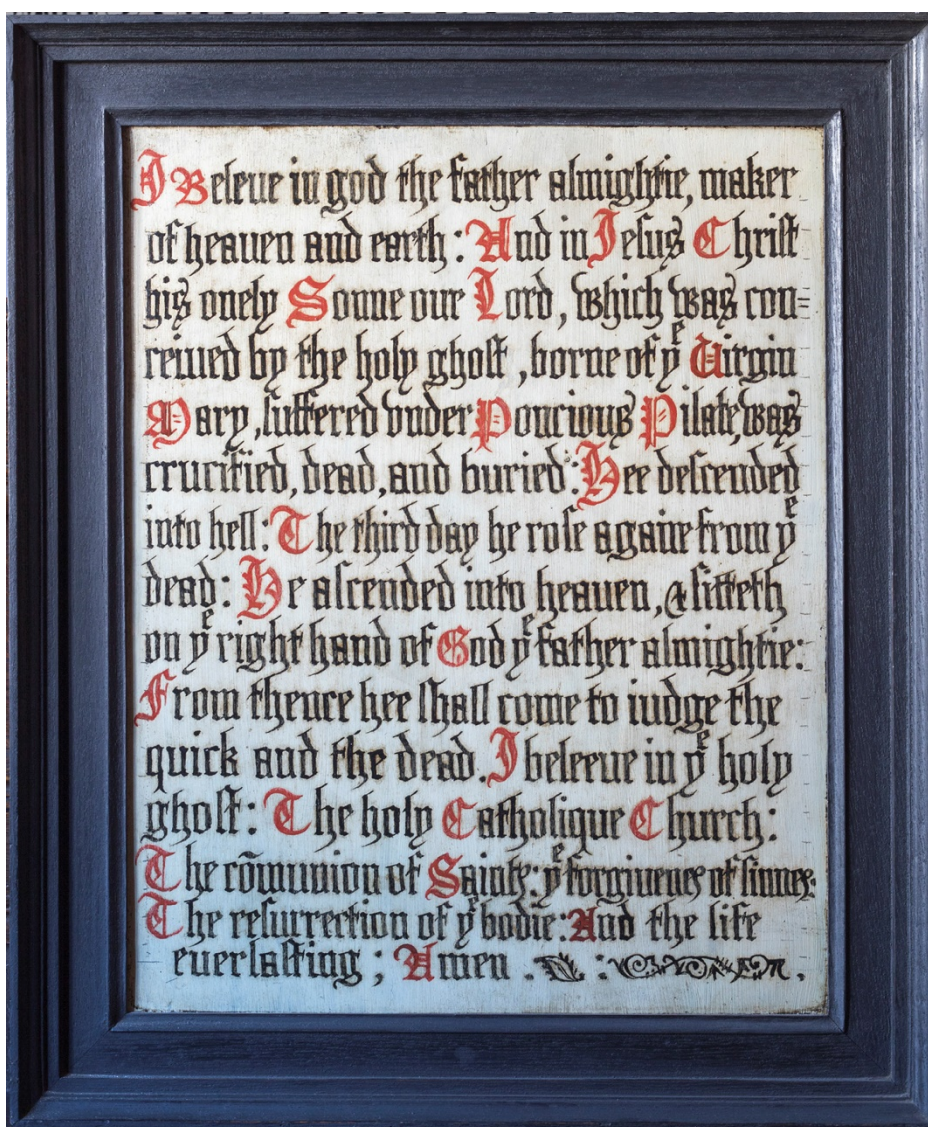 I Beleue in god the father almightie, maker
of heauen and earth: And in Jesus Christ
his onely Sonne our Lord, which was con=
ceiued by the holy ghost, borne of yͤ Uirgin
Mary, suffered vnder Poncious Pilate, was
crucified, dead, and buried: Hee descended
into hell: The third day he rose againe from yͤ
dead: He ascended into heauen, & sitteth
on yͤ right hand of God yͤ father almightie:
From thence hee shall come to iudge the
quick and the dead. I beleeue in yͤ holy
ghost: The holy Catholique Church:
The cõmunion of Saints: yͤ forgiuenes of sinnes:
The resurrection of yͤ bodie: And the life
euerlasting; Amen